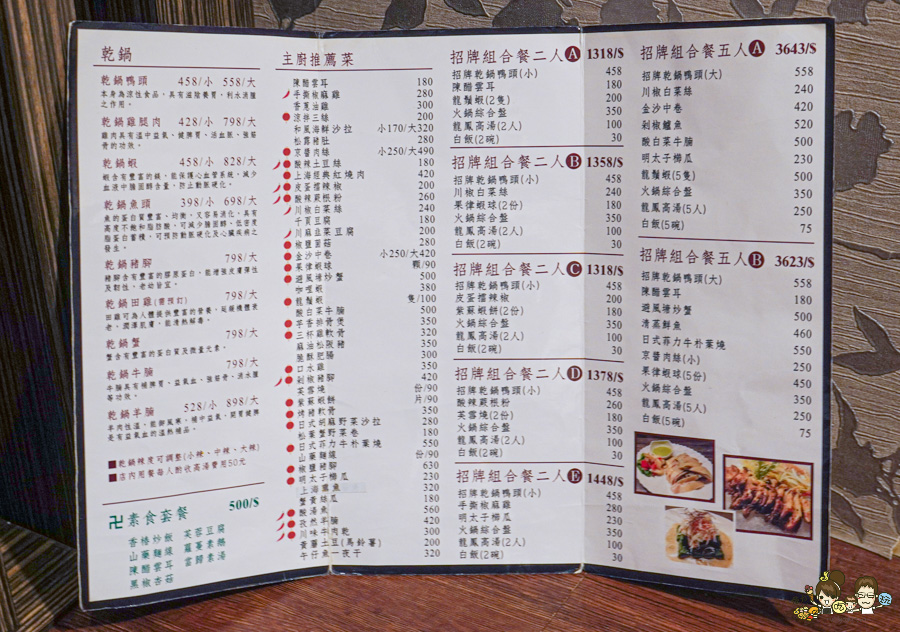 乾鍋
乾鍋鴨頭 458/小 558/大
本身為涼性食品，具有滋陰養胃，利水消腫
之作用。
乾鍋雞腿肉 428/小 798/大
雞肉具有溫中益氣、健脾胃、活血脈、強筋
骨的功效。
乾鍋蝦 458/小 828/大
蝦含有豐富的鎂，能保護心血管系統，減少
血液中膽固醇含量，防止動脈硬化。
乾鍋魚頭 398/小 698/大
魚的蛋白質豐富、均衡，又容易消化，具有
高度不飽和脂肪酸，可減少膽固醇、低密度
脂蛋白蓄積，可預防動脈硬化及心臟疾病之
發生。
乾鍋豬腳 798/大
豬腳含有豐富的膠原蛋白，能增強皮膚彈性
及韌性，老幼皆宜。
乾鍋田雞(需預訂) 798/大
田雞可為人體提供豐富的營養，延緩機體衰
老，潤澤肌膚，能清熱解毒。
乾鍋蟹 798/大
蟹含有豐富的蛋白質及微量元素。
乾鍋牛腩 798/大
牛腩具有補脾胃、益氣血、強筋骨、消水腫
等功效。
乾鍋羊腩 528/小 898/大
羊肉性溫，能禦風寒，補中益氣，開胃健脾
是有益氣血的溫熱補品。
■乾鍋辣度可調整(小辣、中辣、大辣)
■店內用餐每人酌收高湯費用50元
卍素食套餐 500/S
香椿炒飯 芙蓉豆腐
山藥麵線 羅蔓素腸
陳醋雲耳 當歸素湯
黑椒杏菇
主廚推薦菜
陳醋雲耳 180
手撕椒麻雞 280
香蔥油雞 300
涼拌三絲 200
和風海鮮沙拉 小170/大320
松露豬肚 280
京醬肉絲 小250/大490
酸辣土豆絲 180
上海經典紅燒肉 420
皮蛋擂辣椒 200
酸辣蕨根粉 260
川椒白菜絲 240
千頁豆腐 180
川麻韭菜豆腐 200
椒鹽菌菇 280
金沙中卷 小250/大420
果律蝦球 顆/90
避風塘炒蟹 500
咖哩蝦 380
龍鬚蝦 隻/100
酸白菜牛腩 500
芋香排骨煲 350
三杯雞軟骨 320
麻油松阪豬 350
脆酥肥腸 300
口水雞 350
剁椒豬腳 420
芙蓉燒 份/90
紫蘇蝦餅 片/90
烤豬軟骨 350
日式胡麻野菜沙拉 280
松葉蟹野菜卷 180
日式菲力牛朴葉燒 550
山藥麵線 份/90
椒鹽豬腳 630
明太子櫛瓜 230
上海燻魚 320
蟹黃絲瓜 180
酸湯魚 560
孜然羊腩 420
川味牛肉乾 300
黃薑土豆(馬鈴薯) 200
午仔魚一夜干 320
招牌組合餐二人A 1318/S
招牌乾鍋鴨頭(小) 458
陳醋雲耳 180
龍鬚蝦(2隻) 200
火鍋綜合盤 350
龍鳳高湯(2人) 100
白飯(2碗) 30
招牌組合餐二人B 1358/S
招牌乾鍋鴨頭(小) 458
川椒白菜絲 240
果律蝦球(2份) 180
火鍋綜合盤 350
龍鳳高湯(2人) 100
白飯(2碗) 30
招牌組合餐二人C 1318/S
招牌乾鍋鴨頭(小) 458
皮蛋擂辣椒 200
紫蘇蝦餅(2份) 180
火鍋綜合盤 350
龍鳳高湯(2人) 100
白飯(2碗) 30
招牌組合餐二人D 1378/S
招牌乾鍋鴨頭(小) 458
酸辣蕨根粉 260
芙蓉燒(2份) 180
火鍋綜合盤 350
龍鳳高湯(2人) 100
白飯(2碗) 30
招牌組合餐二人E 1448/S
招牌乾鍋鴨頭(小) 458
手撕椒麻雞 280
明太子櫛瓜 230
火鍋綜合盤 350
龍鳳高湯(2人) 100
白飯(2碗) 30
招牌組合餐五人A 3643/S
招牌乾鍋鴨頭(大) 558
川椒白菜絲 240
金沙中卷 420
剁椒鱸魚 520
酸白菜牛腩 500
明太子櫛瓜 230
龍鬚蝦(5隻) 500
火鍋綜合盤 350
龍鳳高湯(5人) 250
白飯(5碗) 75
招牌組合餐五人B 3623/S
招牌乾鍋鴨頭(大) 558
陳醋雲耳 180
避風塘炒蟹 500
清蒸鮮魚 460
日式菲力牛朴葉燒 550
京醬肉絲(小) 250
果律蝦球(5份) 450
火鍋綜合盤 350
龍鳳高湯(5人) 250
白飯(5碗) 75